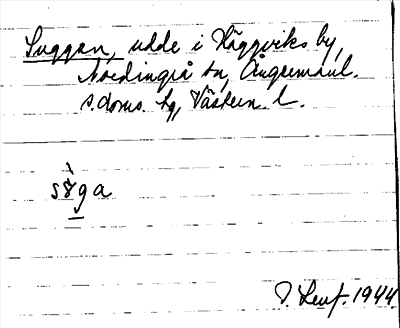 Suggan, udde i Häggviks by,
Nordingrå sn, Ångermanl.
s. doms. hg, Västern. l.
sòga
1944